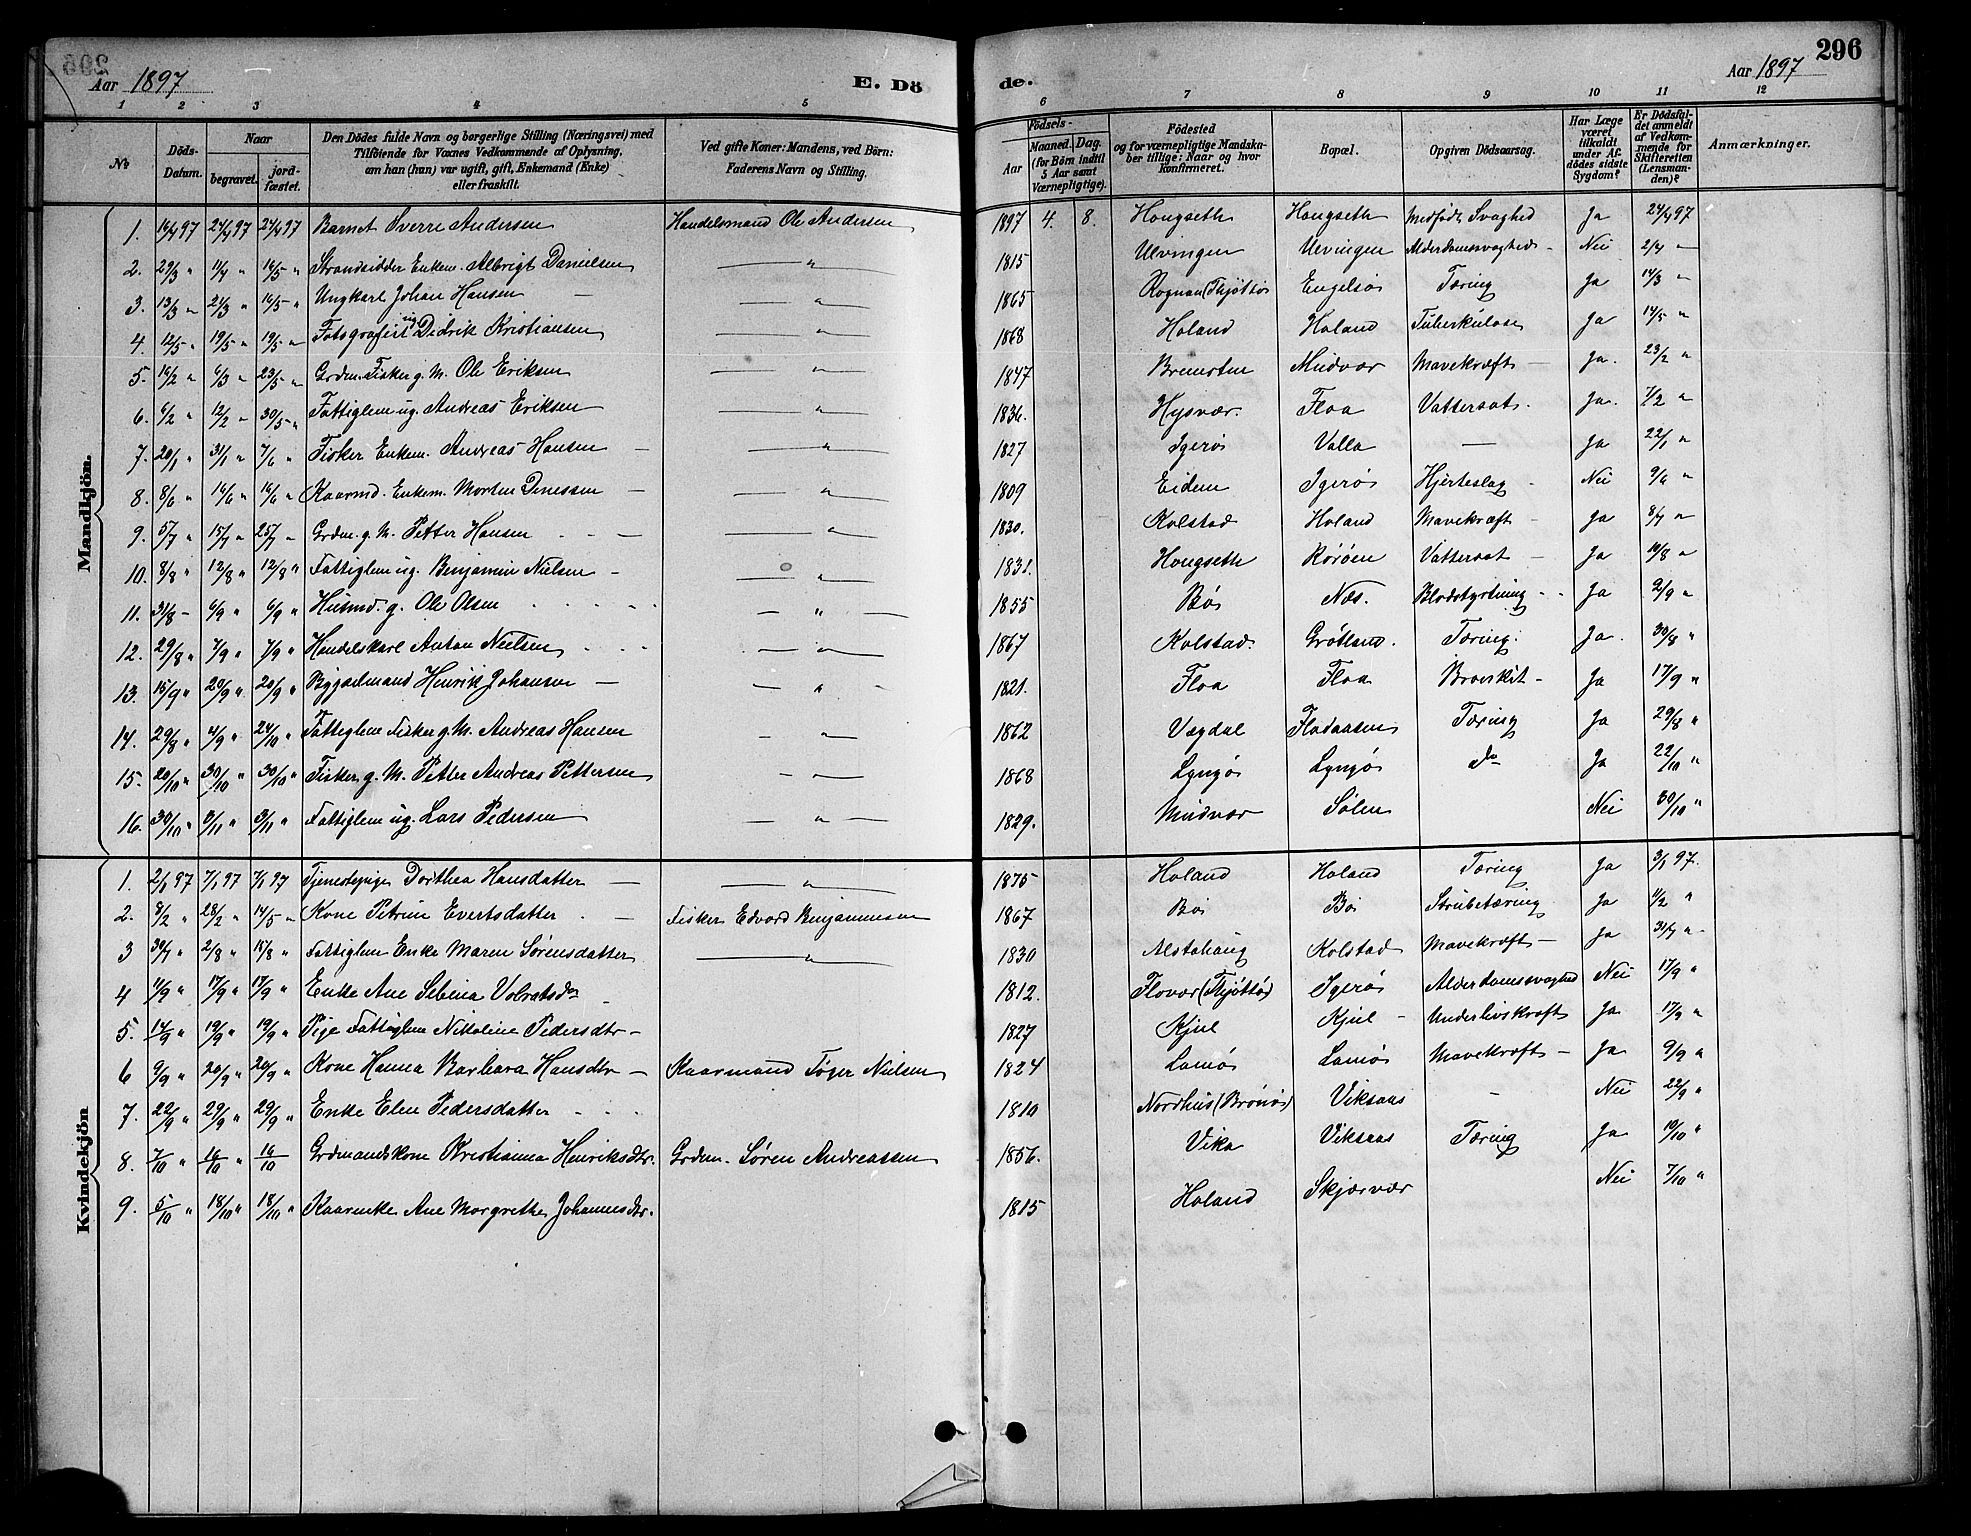 296
Aar 1897 E. Dö de. Aar 1897
1 2 3 4 5 6 7 8 9 10 11 12
No
Döds-Datum.
Naar begravet. jordfæstet.
Den Dödes fulde Navn og borgerlige Stilling (Næringsvei) med
Tilföiende for Voxnes Vedkommende af Oplysning,
om han (hun) var ugift, gift, Enkemand (Enke)
eller fraskilt.
Ved gifte Koner: Mandens, ved Börn:
Faderens Navn og Stilling.
Födsels-
Aar Maaned. Dag.
(for Börn indtil 5 Aar samt Værnepligtige).
Födested
og for værnepligtige Mandskaber tillige: Naar og hvor konfirmeret.
Bopæl.
Opgiven Dödsaarsag.
Har Læge været tilkaldt under Afdödes sidste Sygdom?
Er Dödsfaldet anmeldt af Vedkommende for Skifteretten (Lensmanden)?
Anmærkninger.
Mandkjön.
1. 16/4 97 24/4 97 24/4 97 Barnet Sverre Andersen Handelsmand Ole Andersen 1897 4. 8. Hongseth Hongseth Medfødt Svaghed Ja 24/4 97
2. 29/3 " 11/4 " 16/5 " Strandsidder Enkem. Albrigt Danielsen — " — 1815 Ulvingen Ulvingen Alderdomssvaghed - Nei 2/4 "
3. 13/3 " 21/3 " 16/5 " Ungkarl Johan Hansen — " — 1865 Rognan (Thjøttø) Engelsø Tæring Ja 14/3 "
4. 12/5 " 19/5 " 19/5 " Fotografist ug Didrik Kristiansen — " — 1868 Holand Holand Tuberkulose Ja 14/5 "
5. 16/2 " 6/3 " 23/5 " Grdm. Fisker g. M. Ole Eriksen — " — 1847 Bremsten Mudvær Mavekræft - Ja. 23/2 "
6. 6/2 " 12/2 " 30/5 " Fattiglem ug. Andreas Eriksen — " — 1836. Hysvær. Floa Vattersot. Ja. 7/2 "
7. 20/1 " 31/1 " 7/6 " Fisker Enkem. Andreas Hansen — " — 1827 Igerø Valla — Ja 22/1 "
8. 8/6 " 16/6 " 16/6 " Kaarmd. Enkem. Morten — " — 1809 Eidem Igerø Hjerteslag - Nei 9/6 "
9. 5/7 " 15/7 " 25/7 " Grdm. g. M. Petter Hansen — " — 1830. Kolstad Holand Mavekræft - Ja 8/7 "
10. 8/8 " 12/8 " 12/8 " Fattiglem ug. Benjamin Nielsen — " — 1831. Hongseth Rørøen Vattersot - Ja 10/8 "
11. 31/8 - 6/9 " 6/9 " Husmd. g. Ole Olsen — " — 1855 Bø Næs. Blodstyrtning - Ja 2/9 "
12. 29/8 " 7/9 " 7/9 " Handelskarl Anton Nielsen — " — 1867 Kolstad. Grøtland. Tæring. Ja. 30/8 "
13. 15/9 " 20/9 " 20/9 " Bygselmand Henrik Johansen — " — 1821. Floa Floa Ja 17/9 "
14. 29/8 " 4/9 " 24/10 " Fattiglem Fisker g. M. Andreas Hansen — " — 1862 Vægdal Flodaasen Tæring Ja 29/8 "
15. 20/10 " 30/10 " 30/10 " Fisker g. M. Petter Andreas Pettersen — " — 1868 Lyngø Lyngø do Ja 22/10 "
16. 30/10 " 3/11 " 3/11 " Fattiglem ug. Lars Pedersen — " — 1829. Mudvær Sølen Nei 30/10 "
Kvindekjön
1. 2/1 97 7/1 97 7/1 97 Tjenestepige Dorthea Hansdatter — " — 1875 Holand Holand Tæring Ja 3/1 97.
2. 8/2 " 28/2 " 14/5 " Kone Petrine Evertsdatter Fisker Edvard Benjaminsen 1867 Bø Bø Strubetæring Ja 1/2 "
3 30/7 " 2/8 " 15/8 " Fattiglem Enke Maren Sørensdatter — " — 1830 Alstahaug Kolstad Mavekræft - Ja 31/7 "
4 11/9 " 17/9 " 17/9 " Enke Ane Sebina Volratsdr 1812. Flovær (Thjøttø) Igerø Alderdomssvaghed Nei 17/9 "
5. 14/9 " 19/9 " 19/9 " Pige Fattiglem Nikoline Pedersdtr - 1827 Kjul Kjul - Underlivskræft Ja 17/9 "
6 9/9 " 20/9 " 20/9 " Kone Hanna Barbara Hansdtr - Kaarmand Tøger Nielsen 1824 Lamø Lamø Mavekræft - Ja 9/9 "
7. 22/9 " 29/9 " 29/9 " Enke Elen Pedersdatter 1810 Nordhus (Brønø) Viksaas - Nei 22/9 "
8. 7/10 " 16/10 " 16/10 Grdmandskone Kristianna Henriksdtr. Grdm. Søren Andreassen 1856. Vika Viksaas Tæring Ja 10/10 "
9. 5/10 " 18/10 " 18/10 " Kaarenke Ane Margrethe Johannesdtr. 1815 Holand Skjærvær Nei 7/10 "